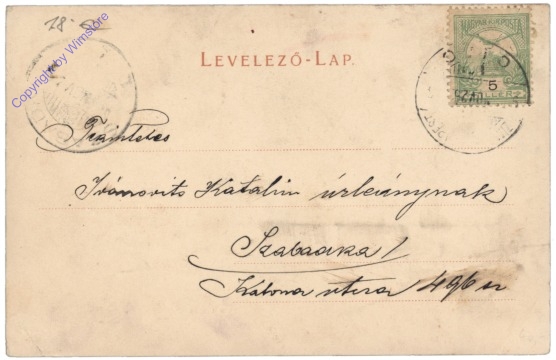 18
Copyright by Wimstore
LEVELEZŐ-LAP.
MAGYAR KIR. POSTA
5
FILLÉR
Tekintetes
Ivánovits Katalin úrleánynak
Szabadka/
Katona utcza 496 sz